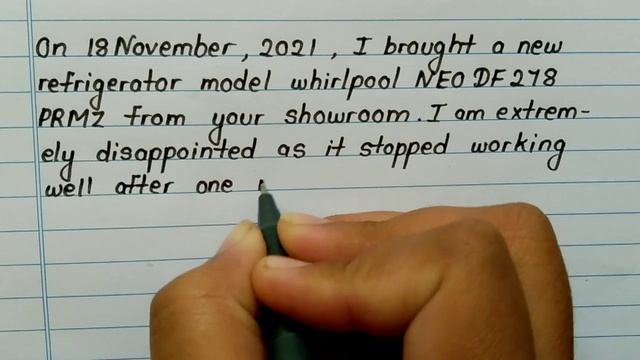 On 18 November, 2021, I brought a new
refrigerator model whirlpool NEO DF278
PRMZ from your showroom. I am extrem-
ely disappointed as it stopped working
well after one